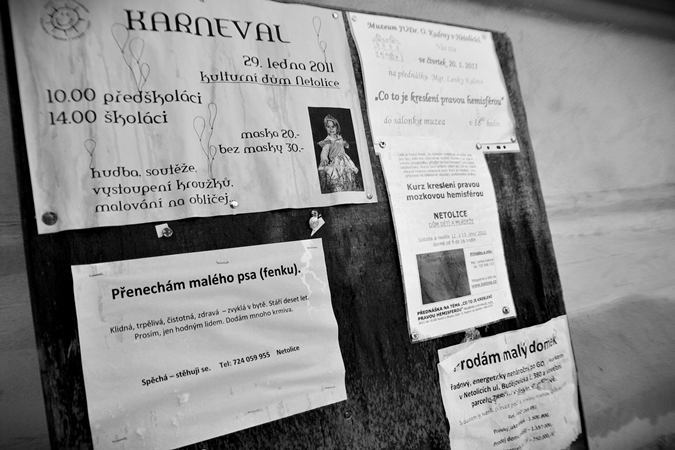 KARNEVAL
29. ledna 2011
Kulturní dům Netolice
10.00 předškoláci
14.00 školáci
maska 20.-
bez masky 30.-
hudba, soutěže,
vystoupení kroužků,
malování na obličej.
Muzeum JUDr. O. Kudrny v Netolicích
Vás zve
ve čtvrtek 20. 1. 2011
na přednášku Mgr. Lenky
„Co to je kreslení pravou hemisférou“
do salonku muzea v 18
Kurz kreslení pravou
mozkovou hemisférou
NETOLICE
DŮM DĚTÍ A MLÁDEŽE
PŘEDNÁŠKA NA TÉMA „CO TO JE KRESLENÍ
PRAVOU HEMISFÉROU“
Přenechám malého psa (fenku).
Klidná, trpělivá, čistotná, zdravá – zvyklá v bytě. Stáří deset let.
Prosím, jen hodným lidem. Dodám mnoho krmiva.
Spěchá – stěhuji se. Tel: 724 059 955 Netolice
rodám malý domek
řadový, energeticky nenáročný po GO,
v Netolicích ul. Budějovická 380